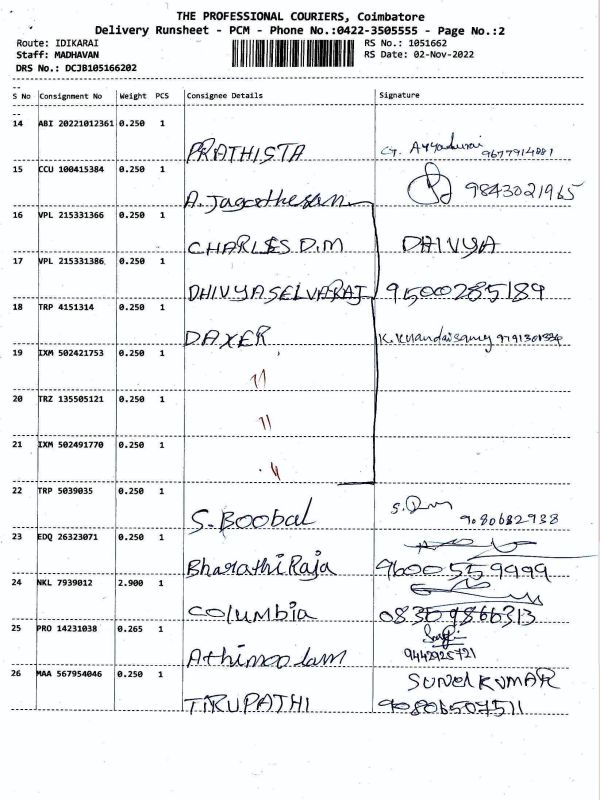 THE PROFESSIONAL COURIERS, Coimbatore
Delivery Runsheet - PCM - Phone No.:0422-3505555 - Page No.:2
Route: IDIKARAI RS No.: 1051662
Staff: MADHAVAN RS Date: 02-Nov-2022
DRS No.: DCJB105166202
S No Consignment No Weight PCS Consignee Details Signature
14 ABI 20221012361 0.250 1
PRATHISTA 9677914081
15 CCU 100415384 0.250 1
A. Jagatheesan 9843021965
16 VPL 215331366 0.250 1
CHARLES D.M DHIVYA
17 VPL 215331386 0.250 1
DHIVYASELVARAJ 9500285189
18 TRP 4151314 0.250 1
DAXER K. Kulandaisamy
19 IXM 502421753 0.250 1
"
20 TRZ 135505121 0.250 1
"
21 IXM 502491770 0.250 1
"
22 TRP 5039035 0.250 1
S. Boobal 9080682938
23 EDQ 26323071 0.250 1
Bharathi Raja 9600559999
24 NKL 7939012 2.900 1
Columbia 08309866313
25 PRO 14231038 0.265 1
Athimoolam 9442925721
26 MAA 567954046 0.250 1
SUNEL KUMAR
TIRUPATHI 90806507511